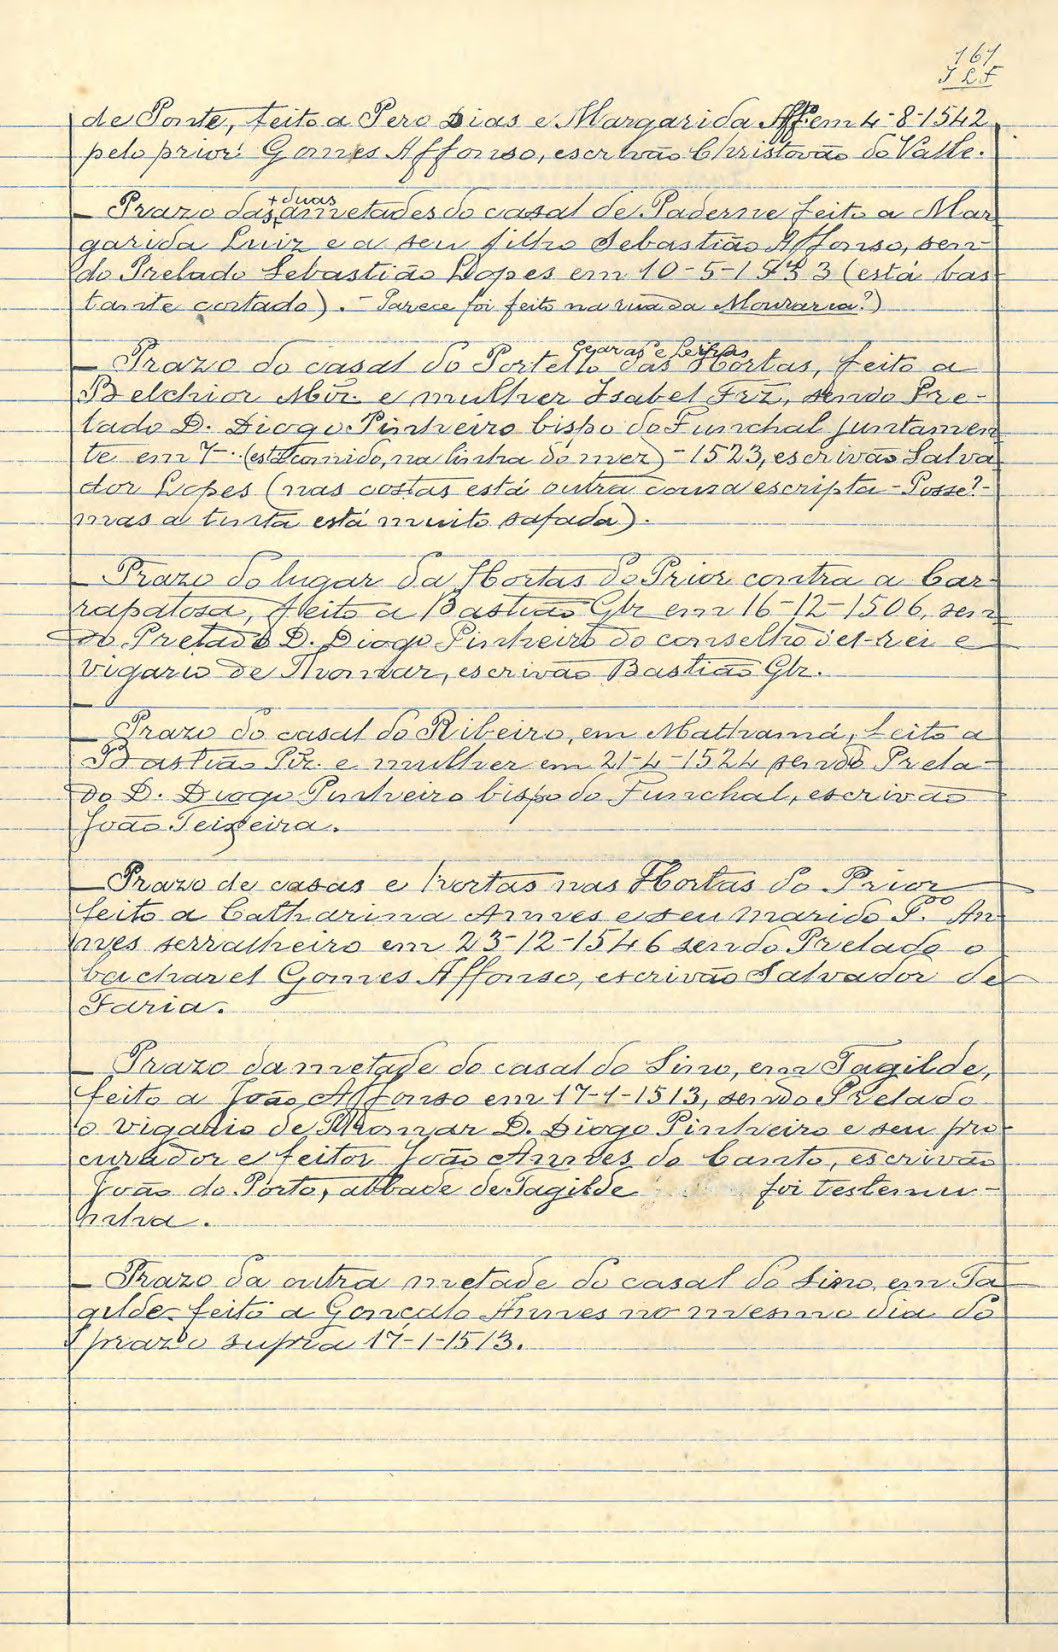 161
de Ponte, feito a Pero Dias e Margarida Aff. em 4-8-1542
pelo prior Gomes Affonso, escrivão Christovão do Valle.
+ duas
– Prazo das ametades do casal de Paderne feito a Mar
garida Luiz e a seu filho Sebastião Affonso, sen-
do Prelado Sebastião Lopes em 10-5-1533 (está bas
tante cortado). – Parece foi feito na rua da Mouraria?)
Searas e leiras
– Prazo do casal do Portello das Hortas, feito a
Belchior Miz. e mulher Isabel Frz, sendo Pre-
lado D. Diogo Pinheiro bispo do Funchal juntamen
te em 7-·· (está comido, na linha do mez) -1523, escrivão Salva
dor Lopes (nas costas está outra cousa escripta - Posse? -
mas a tinta está muito safada).
– Prazo do lugar da Hortas do Prior contra a Car-
rapatosa, feito a Bastião Glz em 16-12-1506, sen
do Prelado D. Diogo Pinheiro do conselho d'el-rei e
vigario de Thomar, escrivão Bastião Glz.
– Prazo do casal do Ribeiro, em Mathamá, feito a
Bastião Piz. e mulher em 21-4-1524 sendo Prela-
do D. Diogo Pinheiro bispo do Funchal, escrivão
João Teixeira.
– Prazo de casas e hortas nas Hortas do Prior
feito a Catharina Annes e seu marido P.º An
nes serralheiro em 23-12-1546 sendo Prelado o
bacharel Gomes Affonso, escrivão Salvador de
Faria.
– Prazo da metade do casal do Sino, em Tagilde,
feito a João Affonso em 17-1-1513, sendo Prelado
o vigario de Thomar D. Diogo Pinheiro e seu pro-
curador e feitor João Annes do Canto, escrivão
João do Porto, abbade de Tagilde foi testemu-
nha.
– Prazo da outra metade do casal do Sino, em Ta
gilde feito a Gonçalo Annes no mesmo dia do
prazo supra 17-1-1513.